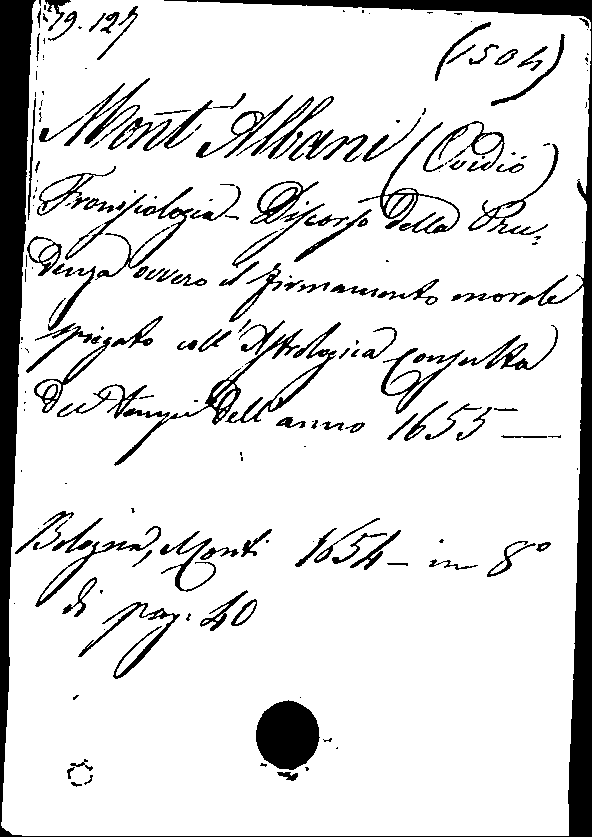 79.127
(1504)
Mont'Albani (Ovidio)
Fronisiologia - Discorso della Pru=
denza ovvero il firmamento morale
spiegato coll'Astrologica Consulta
dei tempi dell'anno 1655 —
Bologna, Monti 1654 - in 8°
di pag. 40